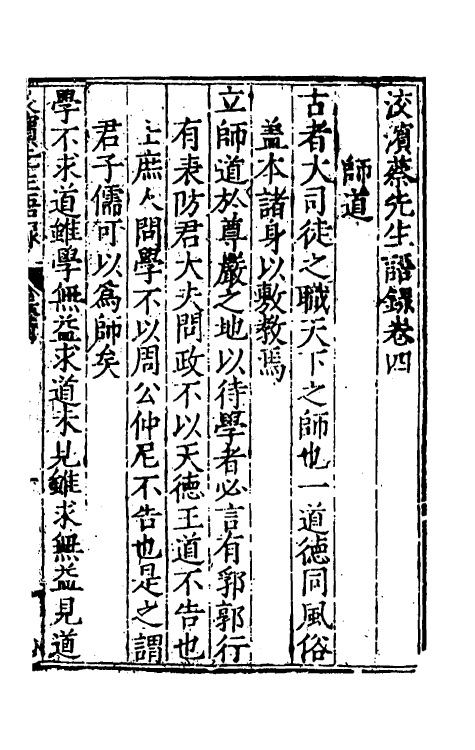 洨濱蔡先生語録卷四
師道
古者大司徒之職天下之師也一道德同風俗
蓋本諸身以敷教焉
立師道於尊嚴之地以待學者必言有郛郭行
有表防君大夫問政不以天德王道不告也
士庶人問學不以周公仲尼不告也是之謂
君子儒可以爲師矣
學不求道雖學無益求道未見雖求無益見道